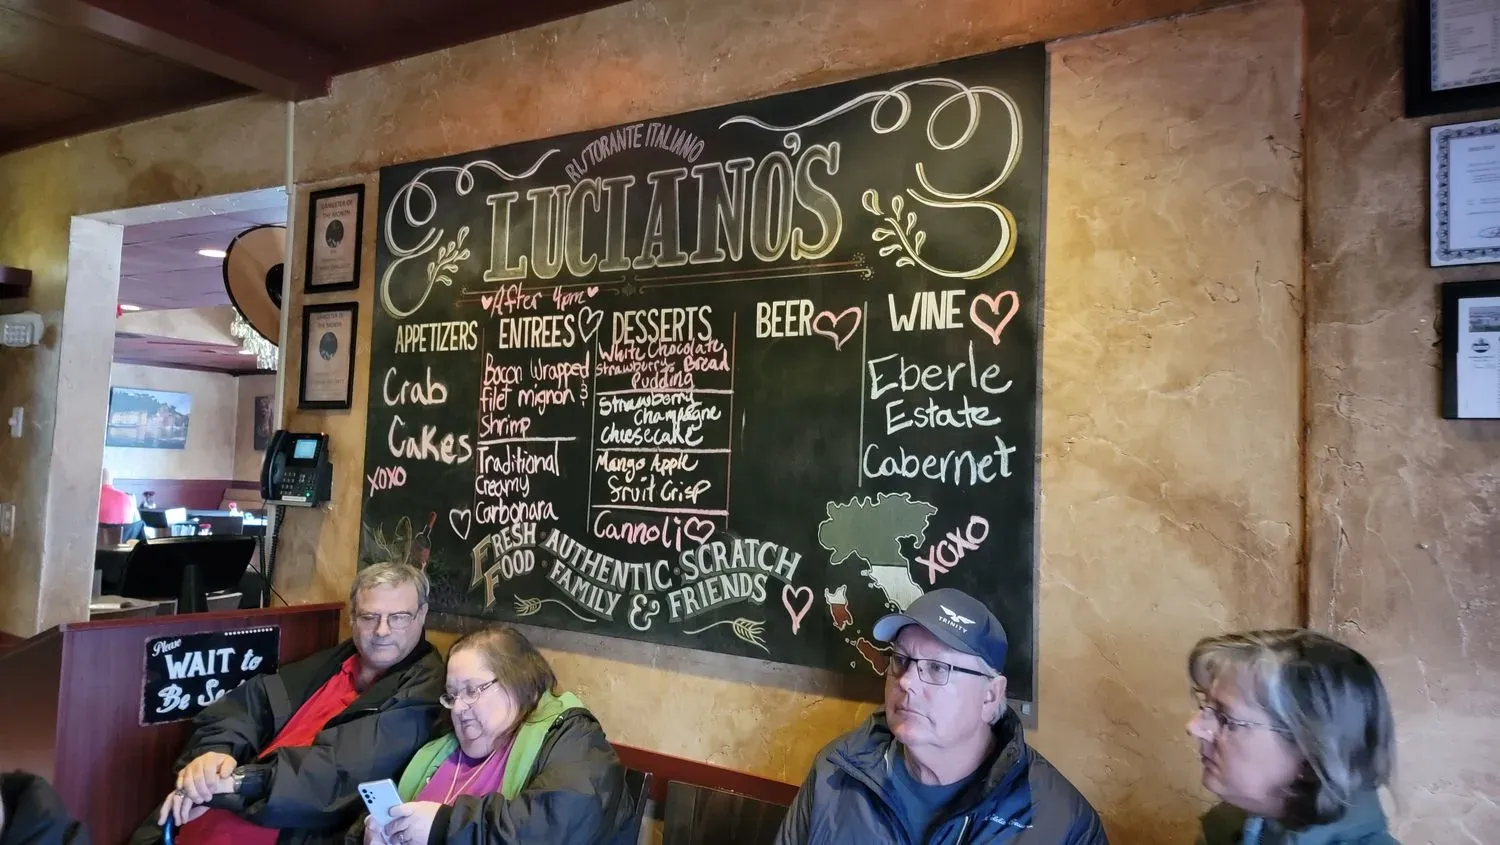 RISTORANTE ITALIANO
LUCIANO'S
After 4pm
APPETIZERS
Crab
Cakes
XOXO
ENTREES
Bacon Wrapped
filet mignon &
Shrimp
Traditional
Creamy
Carbonara
DESSERTS
White Chocolate
Strawberry Bread
Pudding
Strawberry
Champagne
Cheesecake
Mango Apple
Fruit Crisp
Cannoli
BEER
WINE
Eberle
Estate
Cabernet
XOXO
FRESH · AUTHENTIC · SCRATCH
FOOD · FAMILY & FRIENDS
GANGSTER OF
THE MONTH
GANGSTER OF
THE MONTH
Please
WAIT to
Be
TRINITY